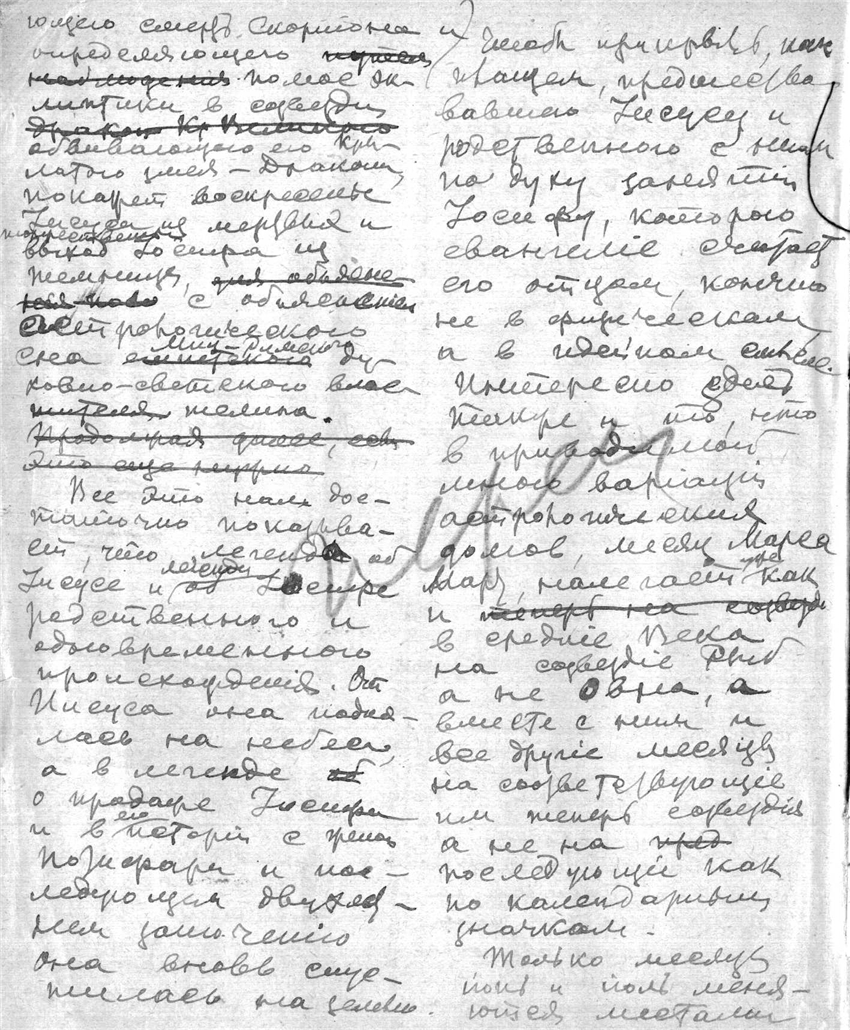 ющего смерть Скорпиона и
определяющего путем
наблюдения полюс эк-
липтики в созвездии
дракон Кр Великого
обвивающего его кры-
латого змея – Дракона,
покажет воскресенье
Иисуса из мертвых и
торжественный
выход Иосифа из
темницы, для объясне-
ния ново с объяснением
астрологического
миц-римского
сна египетского ду-
ховно-светского влас-
тителя телина.
Продолжая далее, есть
Это еще нужно
Все это нам дос-
таточно показыва-
ет, что легенда об
Иисусе и легенда об Иосифе
родственного и
одновременного
происхождения. От
Иисуса она подня-
лась на небеса,
а в легенде об
о продаже Иосифа
и в его истории с женой
Потифара и пос-
ледующим двухлет-
нем заточению
она вновь спус-
тилась на землю.
чтобы прикрыть, как
плащем, предшество
вавшего Иисусу и
родственного с ним
по духу занятий
Иосифу, которого
евангеліе считает
его отцом, конечно
не в физическом,
а в идейном смысле.
Интересно здесь
также и то, что
в приводимой
мною варіаціи
астрологическия
домов, месяц Марса
Март, налегает уже как
и теперь на созвезди
в средніе Века
на созвездіе Рыб
а не Овна, а
вместе с ним и
все другіе месяцы
на соответствующіе
им теперь созвездія
а не на пред
последующіе как
по календарным
значкам.
Только месяцы
іюнь и іюль меня-
ются местами